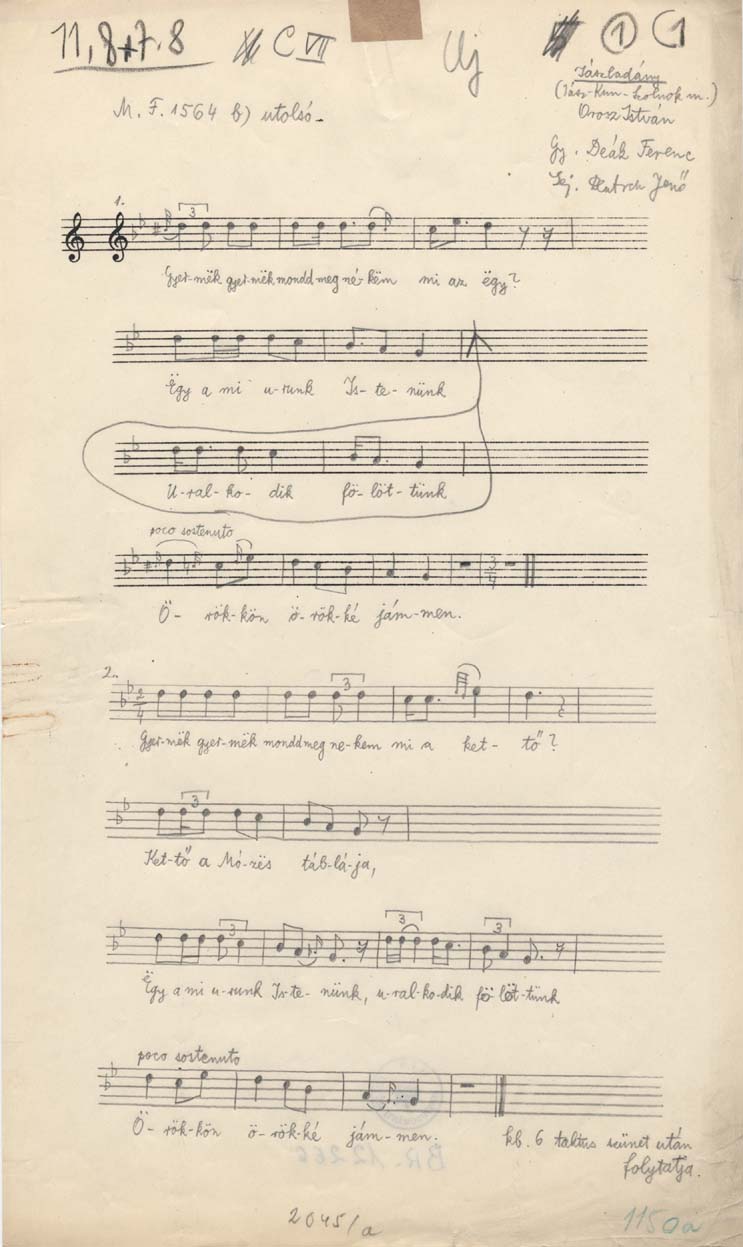 11, 8+7.8 C VII Uj 1 C1
Jászladány
(Jász-Kun-Szolnok m.)
M. F. 1564 b) utolsó.
Orosz István
Gy. Deák Ferenc
Lej. Deutsch Jenő
1.
3
Gyer-mëk gyer-mëk mondd meg né-këm mi az ëgy?
Ëgy a mi u-runk Is-te-nünk
U-ral-ko-dik fö-löt-tünk
poco sostenuto
3
4
Ö- rök-kön ö-rök-ké jám-men.
2.
2
4
3
Gyer-mëk gyer-mëk mondd meg ne-kem mi a ket-tő?
3
Ket-tő a Mó-zës táb-lá-ja,
3 3 3
Ëgy a mi u-runk Is-te-nünk, u-ral-ko-dik fö-löt-tünk
poco sostenuto
Ö- rök-kön ö-rök-ké jám-men.
kb. 6 taktus szünet után
folytatja.
BR. 12266
2045/a
1150a